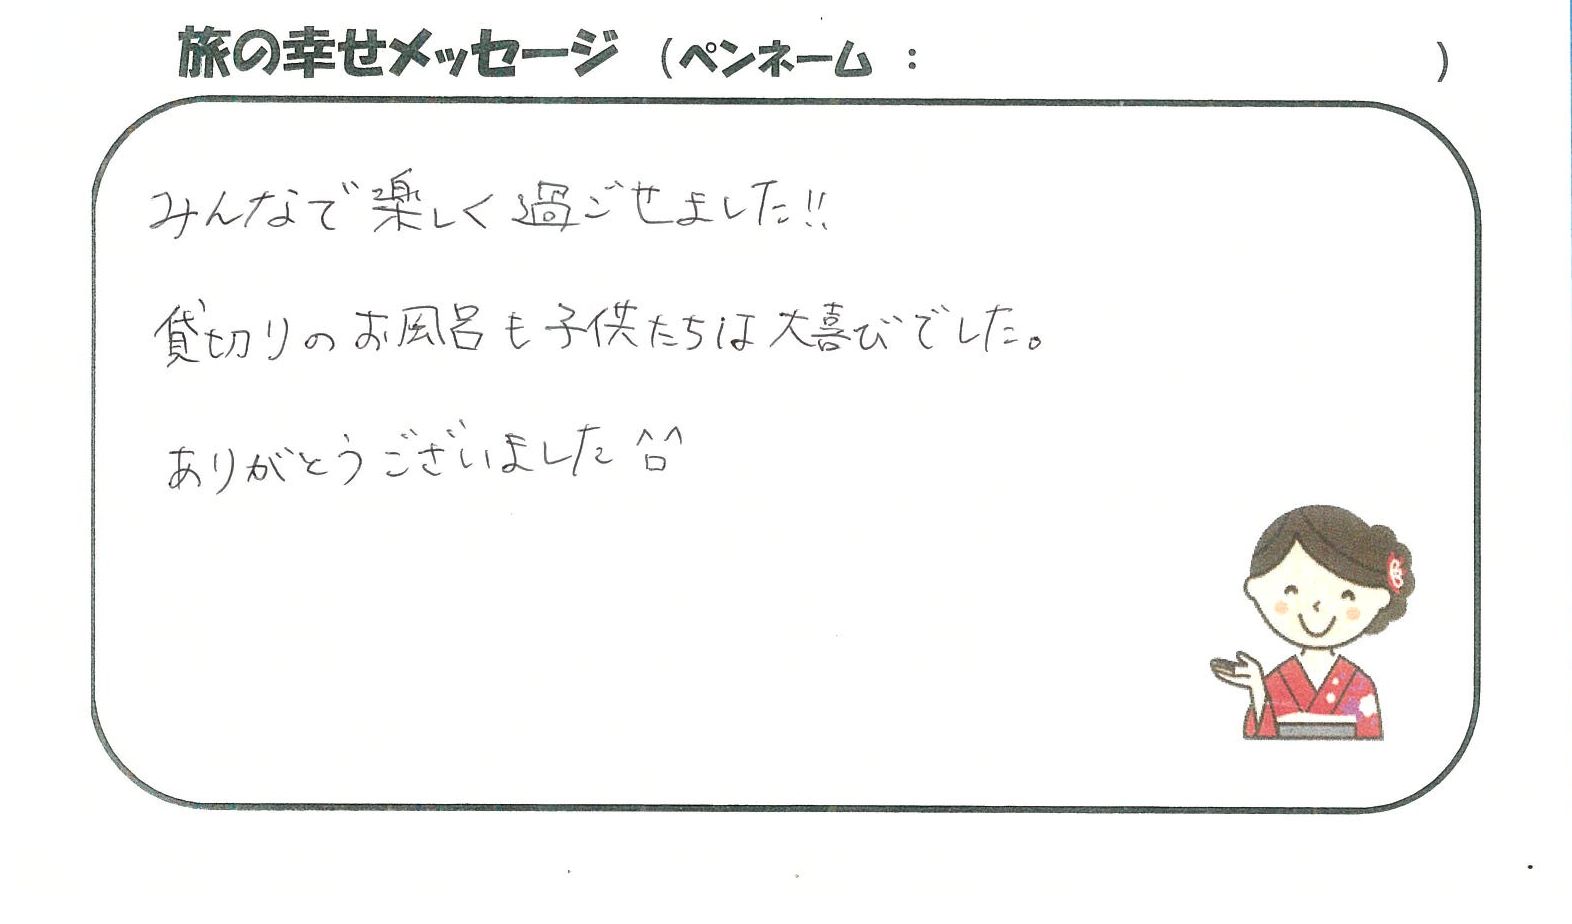 旅の幸せメッセージ （ペンネーム ： ）
みんなで楽しく過ごせました!!
貸切りのお風呂も子供たちは大喜びでした。
ありがとうございました ^ロ^